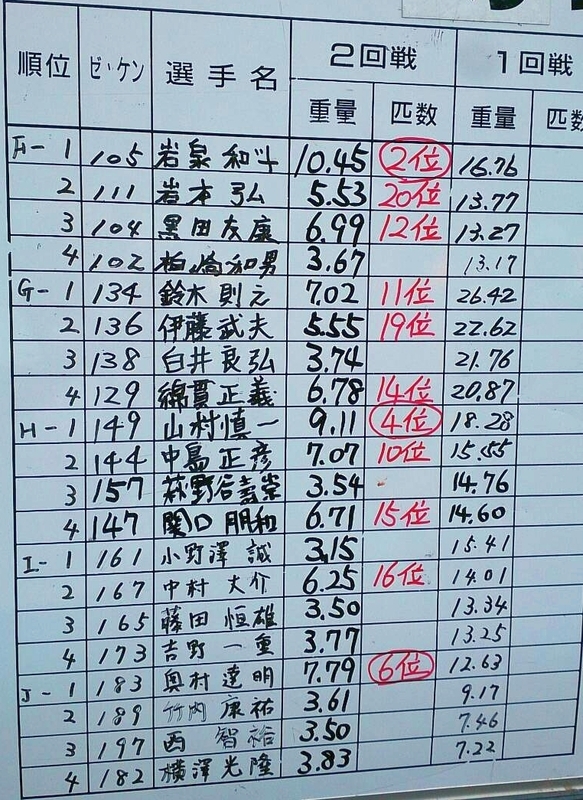 順位 ゼ・ケン 選手名 2回戦 1回戦
重量 匹数 重量 匹数
F-1 105 岩泉 和斗 10.45 2位 16.76
2 111 岩本 弘 5.53 20位 13.77
3 104 黒田友康 6.99 12位 13.27
4 102 柏崎和男 3.67 13.17
G-1 134 鈴木則之 7.02 11位 26.42
2 136 伊藤武夫 5.55 19位 22.62
3 138 白井良弘 3.74 21.76
4 129 綿貫正義 6.78 14位 20.87
H-1 149 山村慎一 9.11 4位 18.28
2 144 中島正彦 7.07 10位 15.55
3 157 萩野谷 3.54 14.76
4 147 関口 朋和 6.71 15位 14.60
I-1 161 小野澤 誠 3.15 15.41
2 167 中村 大介 6.25 16位 14.01
3 165 藤田 恒雄 3.50 13.34
4 173 吉野 一重 3.77 13.25
J-1 183 奥村 達明 7.79 6位 12.63
2 189 竹内 康祐 3.61 9.17
3 197 西 智裕 3.50 7.46
4 182 横澤光隆 3.83 7.22